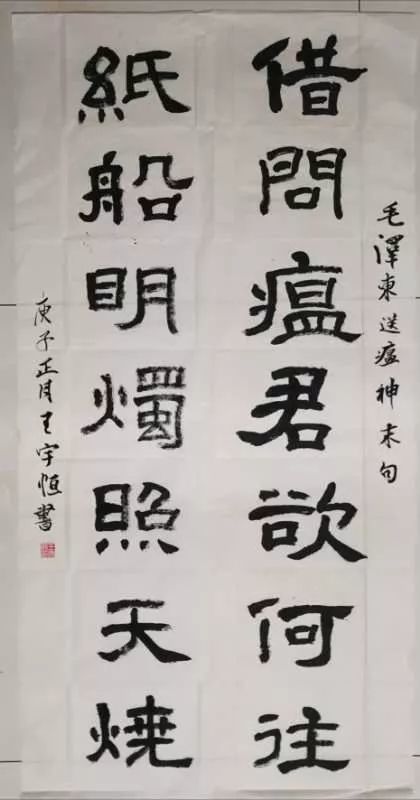 毛澤東送瘟神末句
借問瘟君欲何往
紙船明燭照天燒
庚子正月王宇恒書